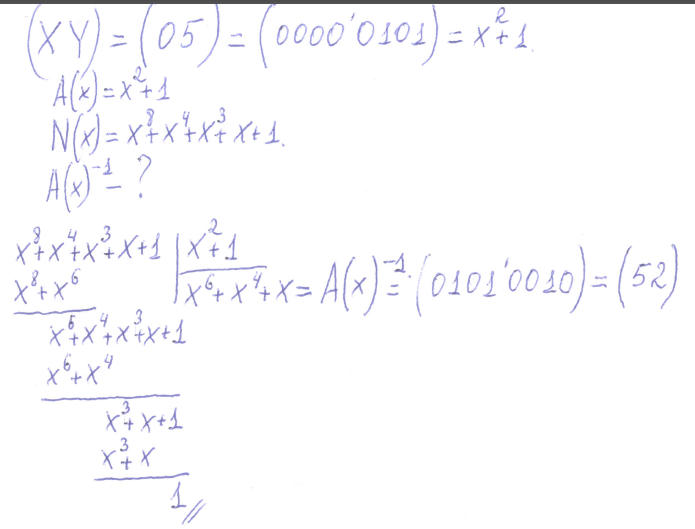 (XY) = (05) = (0000'0101) = x²+1.
A(x)=x²+1
N(x)=x⁸+x⁴+x³+x+1.
A(x)⁻¹ = ?
x⁸+x⁴+x³+x+1 | x²+1
x⁸+x⁶ x⁶+x⁴+x = A(x)⁻¹ = (0101'0010) = (52)
x⁶+x⁴+x³+x+1
x⁶+x⁴
x³+x+1
x³+x
1//